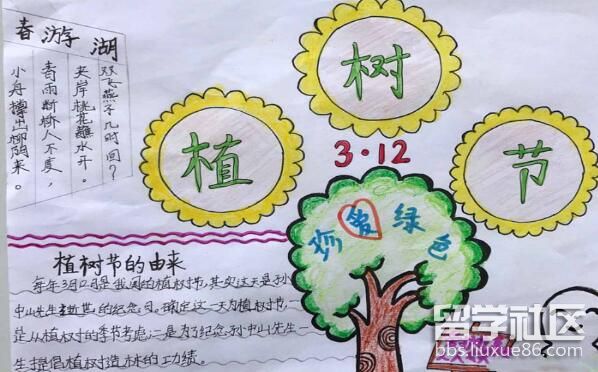 春游湖
双飞燕子几时回？
夹岸桃花蘸水开。
春雨断桥人不度，
小舟撑出柳阴来。
植
树
节
3·12
我爱绿色
植树节的由来
每年3月12日是我国的植树节,其实这天是孙
中山先生逝世的纪念日。确定这一天为植树节,一
是从植树的季节考虑,二是为了纪念孙中山先生一
生提倡植树造林的功绩。
留学社区
bbs.liuxue86.com